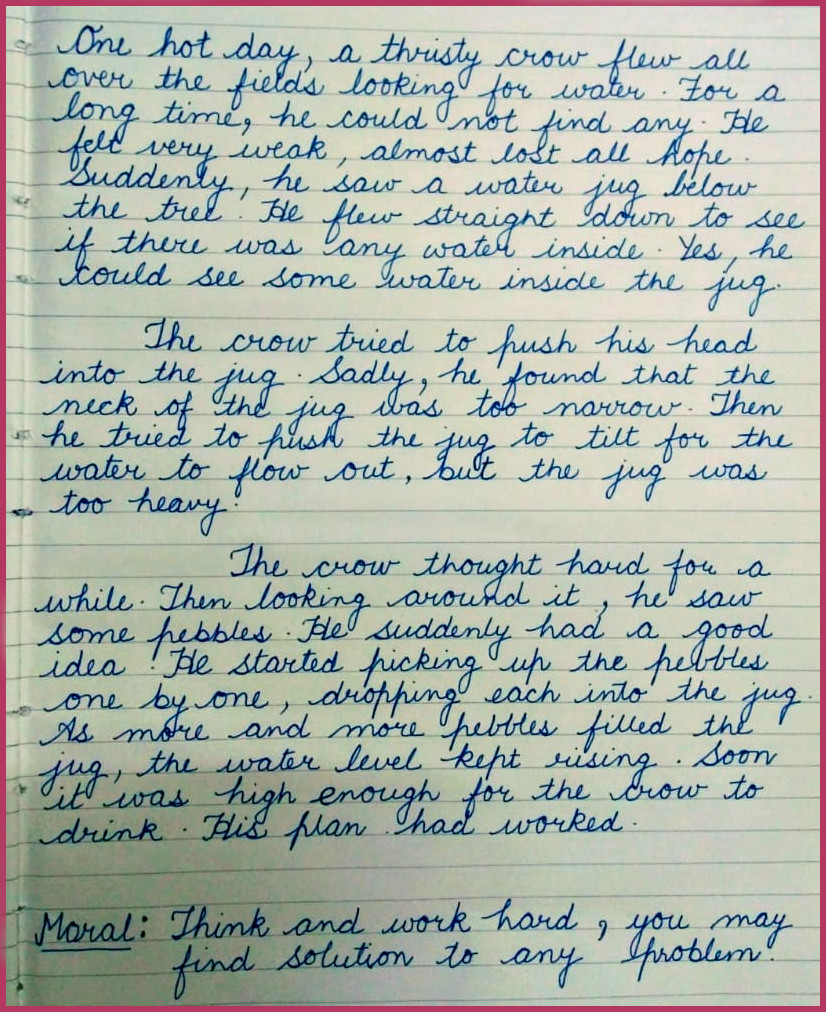 One hot day, a thristy crow flew all
over the fields looking for water. For a
long time, he could not find any. He
felt very weak, almost lost all hope.
Suddenly, he saw a water jug below
the tree. He flew straight down to see
if there was any water inside. Yes, he
could see some water inside the jug.
The crow tried to push his head
into the jug. Sadly, he found that the
neck of the jug was too narrow. Then
he tried to push the jug to tilt for the
water to flow out, but the jug was
too heavy.
The crow thought hard for a
while. Then looking around it, he saw
some pebbles. He suddenly had a good
idea. He started picking up the pebbles
one by one, dropping each into the jug.
As more and more pebbles filled the
jug, the water level kept rising. Soon
it was high enough for the crow to
drink. His plan had worked.
Moral: Think and work hard, you may
find solution to any problem.